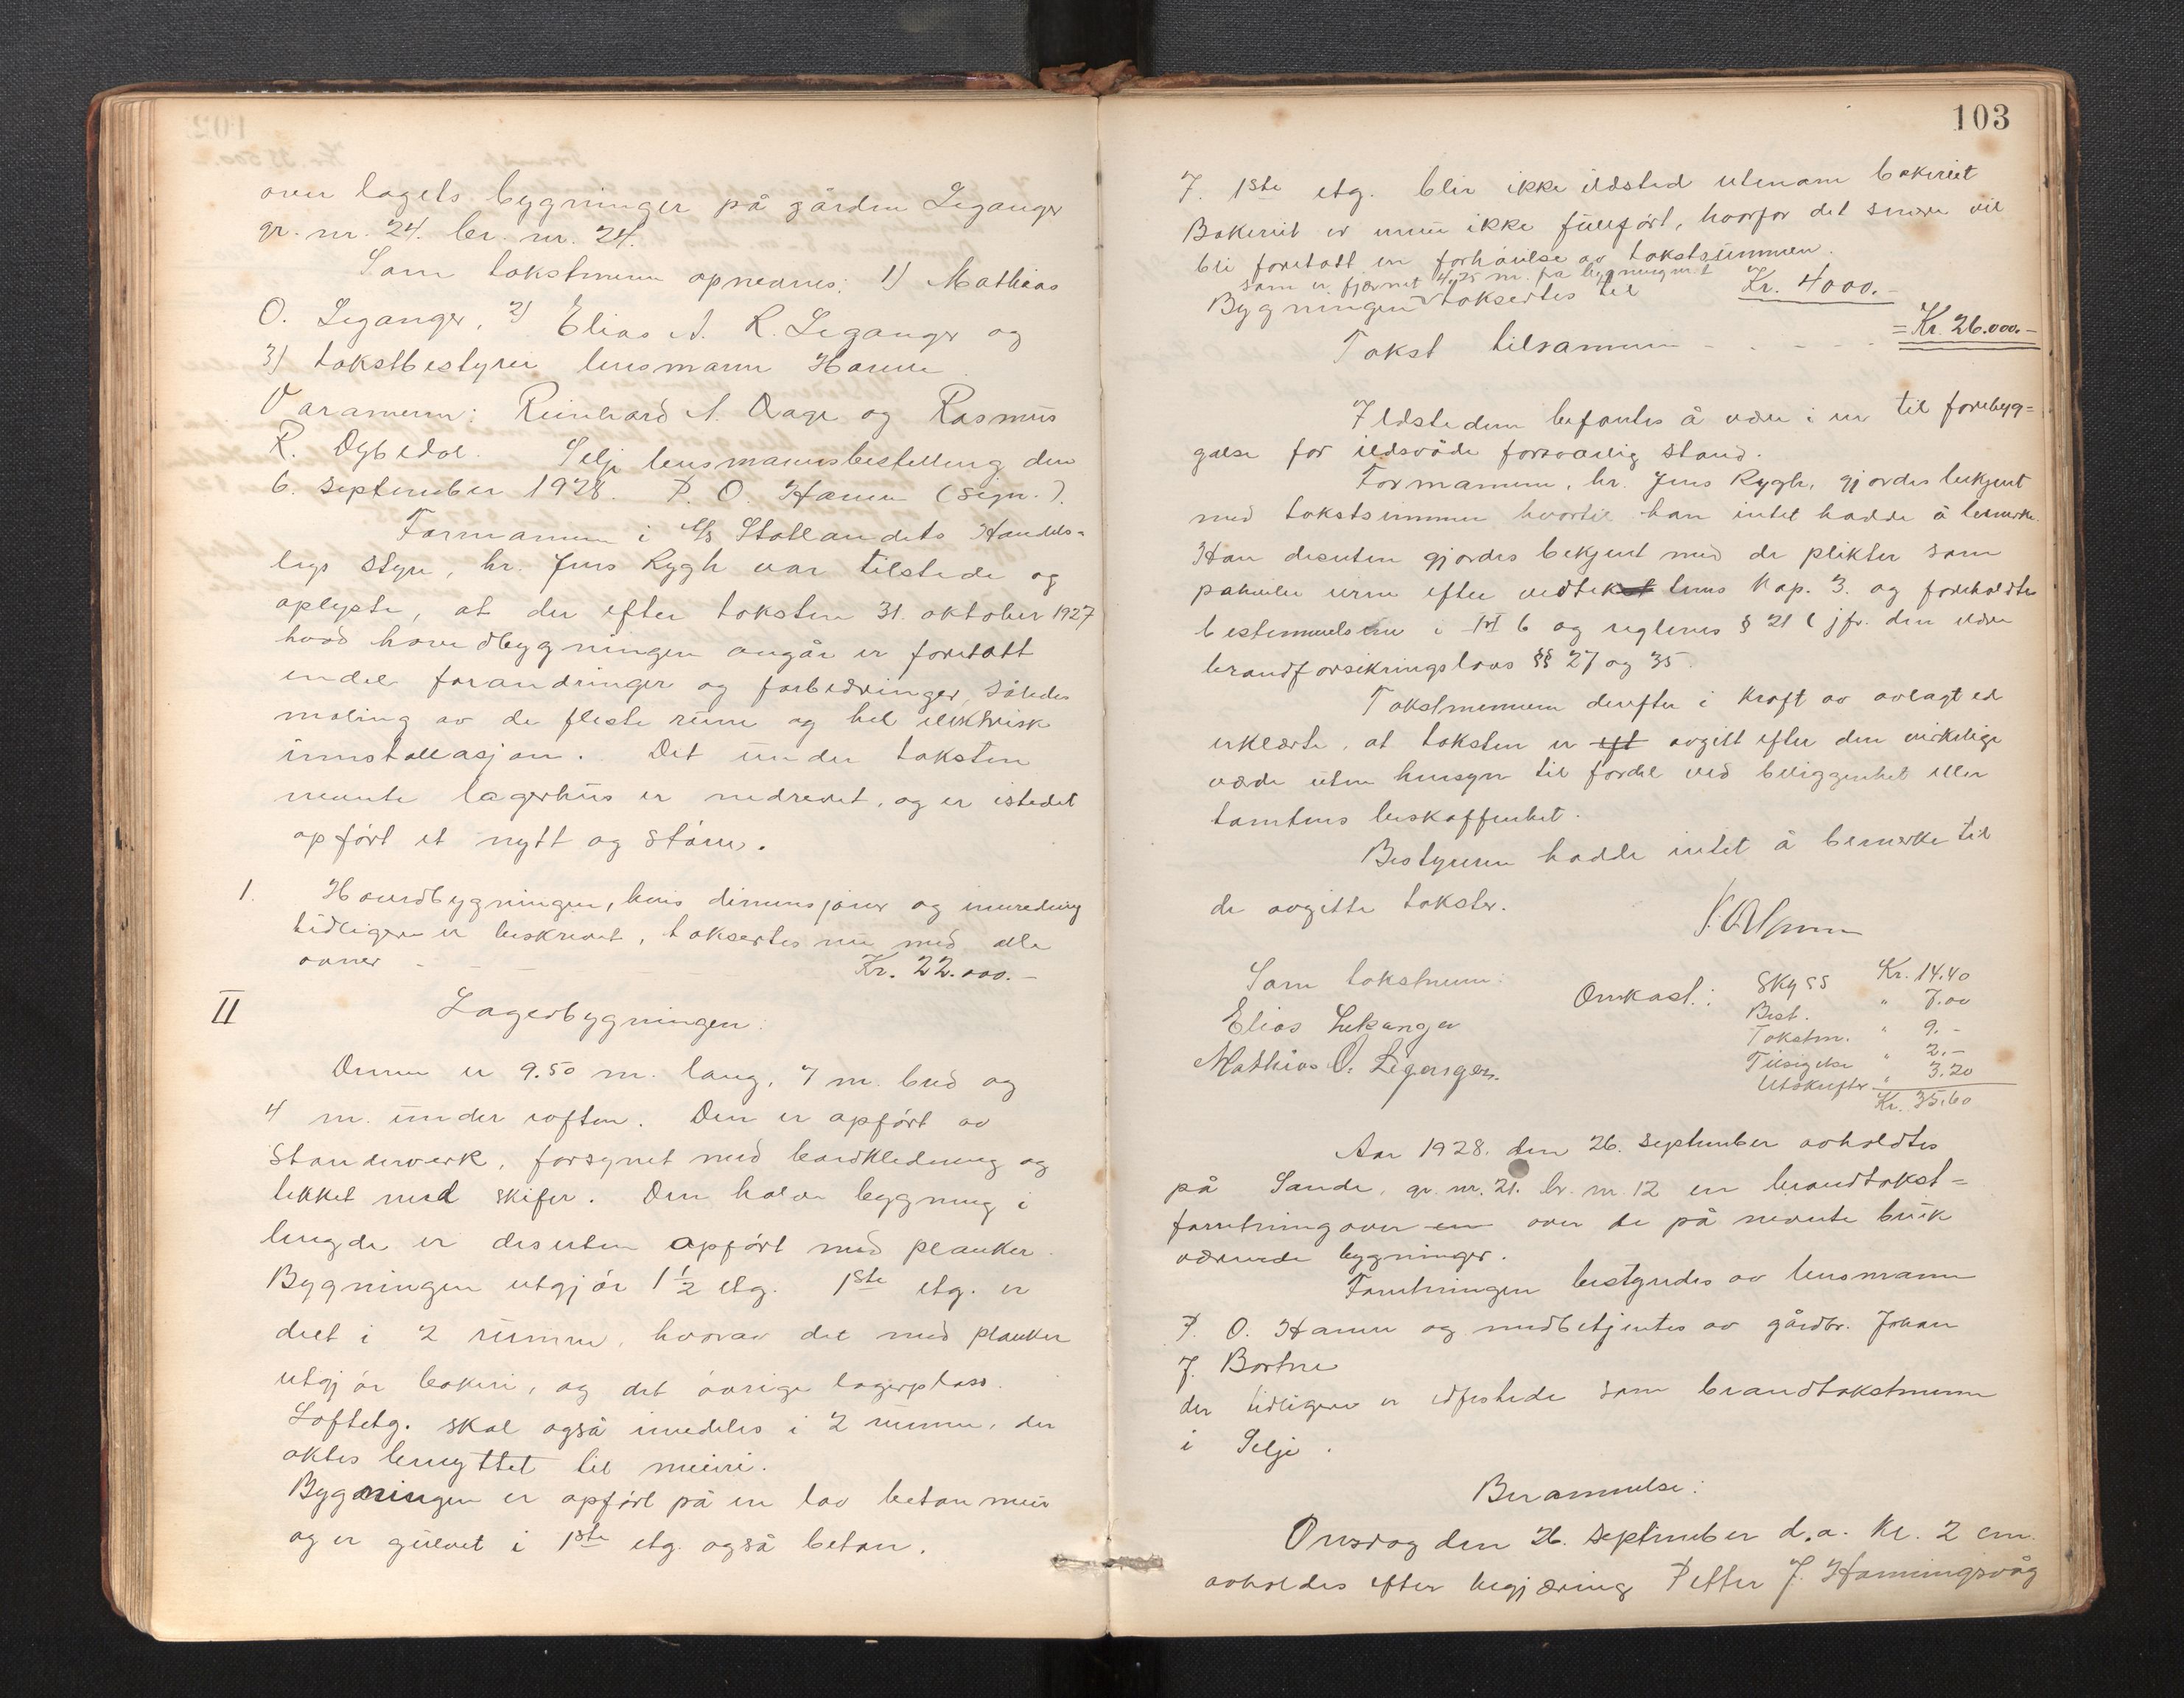 over lagets bygninger på gården Leganger
gr. nr. 24. br. nr. 24.
Som takstmenn opnevnes: 1) Mathias
O. Leganger, 2) Elias A. R. Leganger og
3) takstbestyrer lensmann Hamre.
Varamenn: Reinhard A. Aage og Rasmus
R. Dybedal. Selje lensmannsbestilling den
6. september 1928. P. O. Hamre (sign.).
Formannen i A/s Statlandets Handels-
lags styre, hr. Jens Rygh var tilstede og
oplyste, at der efter taksten 31. oktober 1927
hvad hovedbygningen angår er foretatt
endel forandringer og forbedringer, således
maling av de fleste rum og hel elektrisk
innstallasjon. Det under taksten
nevnte lagerhus er nedrevet, og er istedet
opført et nytt og større.
I. Hovedbygningen, hvis dimensjoner og innredning
tidligere er beskrevet, taksertes nu med alle
ovner - - - Kr. 22.000.-
II Lagerbygningen:
Denne er 9.50 m. lang, 7 m. bred og
4 m. under roften. Den er opført av
standerverk, forsynet med bordkledning og
tekket med skifer. Den halve bygning i
lengde er desuten opført med planker.
Bygningen utgjør 1½ etg. 1ste etg. er
delt i 2 rumm, hvorav det med planker
utgjør bakeri, og det øvrige lagerplass.
Loftetg. skal også innedeles i 2 rumm, der
aktes benyttet til meieri.
Bygningen er opført på en lav betonmur
og er gulvet i 1ste etg. også beton.
103
I. 1ste etg. blir ikke ildsted utenom bakeriet
Bakeriet er ennu ikke fullført, hvorfor det senere vil
bli foretatt en forhøielse av takstsummen.
som er fjernet 4,25 m. fra bygning nr. 1
Bygningen taksertes til Kr. 4000.-
Takst tilsammen - - - - = Kr. 26.000.-
Ildstedene befantes å være i en til forebyg=
gelse for ildsvåde forsvarlig stand.
Formannen, hr. Jens Rygh, gjordes bekjent
med takstsummen hvortil han intet hadde å bemerke.
Han desuten gjordes bekjent med de plikter som
påhviler eieren efter vedtektenes kap. 3. og foreholdtes
bestemmelsene i 6 og reglenes § 21 (jfr. den eldre
brandforsikringslovs §§ 27 og 35.
Takstmennene derefter i kraft av avlagt ed
erklærte, at taksten er eft avgitt efter den virkelige
verdi uten hensyn til fordel ved beliggenhet eller
tomtens beskaffenhet.
Bestyreren hadde intet å bemerke til
de avgitte takster.
P. O. Hamre
Som takstmenn:
Elias Lekanger
Mathias O. Leganger.
Omkost.: Skyss Kr. 14.40
Best. " 7.00
Takstm. " 9.-
Tilsigelse " 2.-
Utskrifter " 3.20
Kr. 35.60
Aar 1928. den 26. september avholdtes
på Sande, gr. nr. 21. br. nr. 12 en brandtakst=
forretning over en over de på nevnte bruk
værende bygninger.
Forretningen bestyrdes av lensmann
P. O. Hamre og medbetjentes av gårdbr. Johan
J. Bortne
der tidligere er edfestede som brandtakstmenn
i Selje.
Berammelse:
Onsdag den 26. september d.a. kl. 2 em.
avholdes efter begjæring Petter J. Hamningsvåg